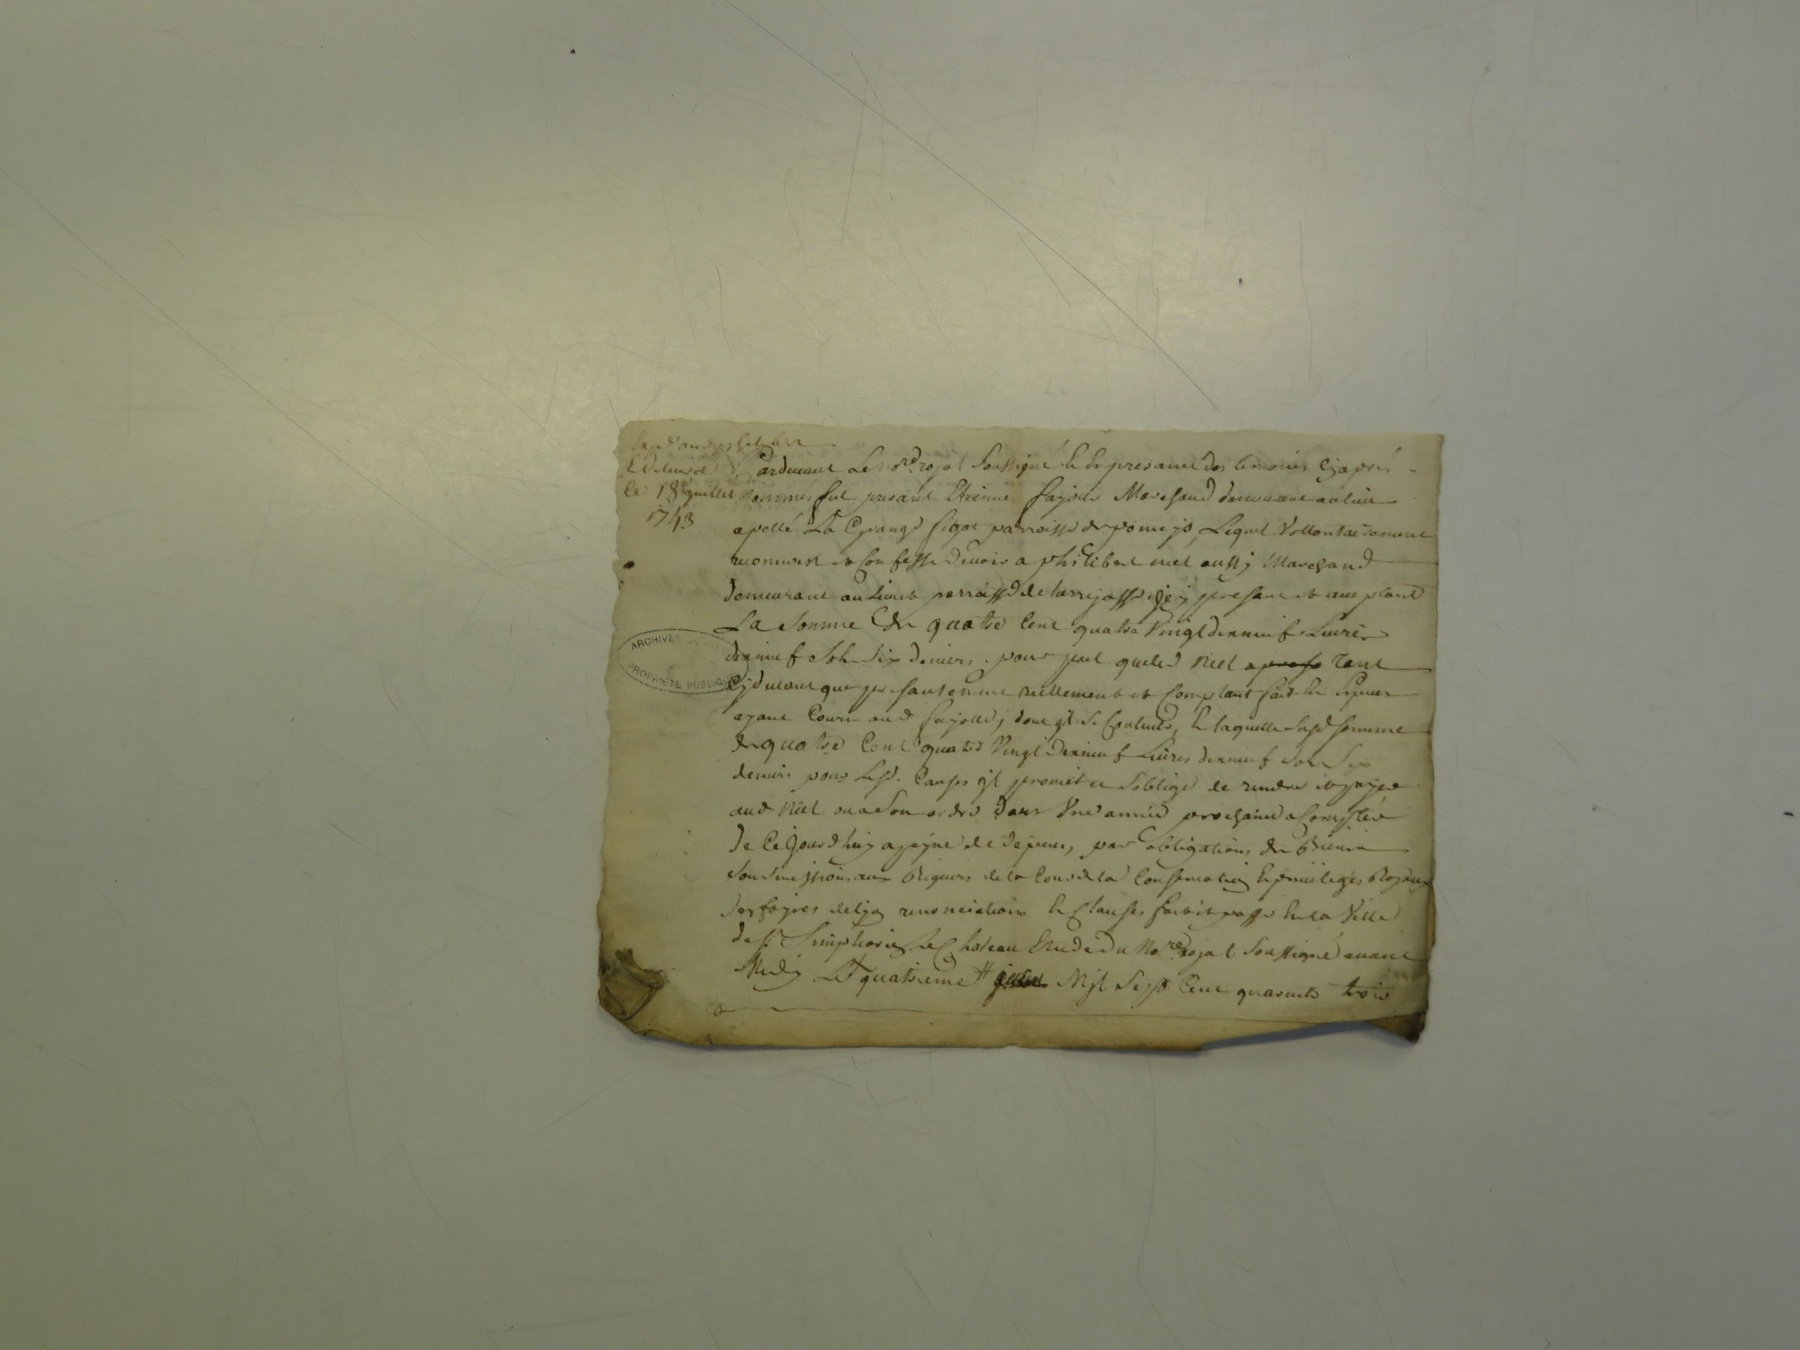 le 18e juillet
1743
Pardevant Le nore royal Soussigné En presance des temoins Cy apres
Nommés fut presant Etienne fayole Marchand demeurant au lieu
apellé La Grange parroisse de pomejs Lequel Vollontairement
a Confessé devoir a philibert niel aussy Marchand
demeurant au parroisse de larrajasse icy presant et aceptant
La Somme de quatre Cent quatre Vingt dixneuf Livres
dixneuf Sols Six deniers pour pret que led Niel tant
Cy devant que presantement reellement et Comptant fait En
ayant Cours aud fayolle, dont il se Contente, laquelle susd somme
de quatre Cent quatre Vingt Dixneuf Livres dixneuf Sols Six
deniers pour Lesd. Causes il promet et Soblige de rendre et payer
aud Niel ou a Son ordre dans Une année prochaine a Compter
de Cejourdhuy a peyne de depens, par obligations de Biens
Soumissions aux Rigueurs de la Cour de la Conservation privileges Royaux
des foyres de Lyon renonciations & Clauses fait et passé En la Ville
de St Simphorien Le Chateau Etude du Nore royal Soussigné avant
Midy Le quatrieme Mil Sept Cent quarante trois
ARCHIVES
PROPRIÉTÉ PUBLIQUE